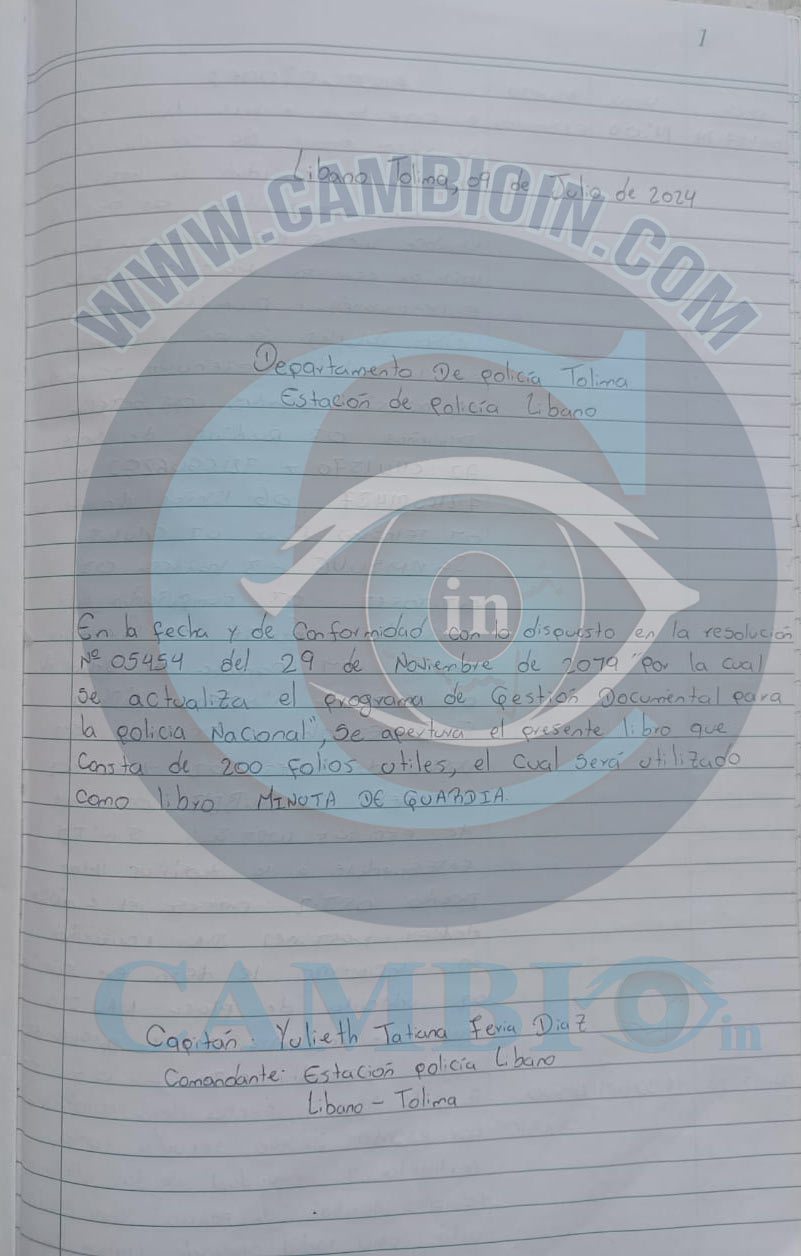 1
Libano Tolima, 09 de Julio de 2024
WWW.CAMBIOIN.COM
Departamento De policía Tolima
Estación de policía Libano
in
En la fecha y de Conformidad con lo dispuesto en la resolución
Nº 05454 del 29 de Noviembre de 2019 "Por la cual
se actualiza el programa de Gestión Documental para
la policia Nacional", se apertura el presente libro que
Consta de 200 folios utiles, el cual será utilizado
como libro MINUTA DE GUARDIA.
CAMBIO in
Capitán. Yulieth Tatiana feria Diaz
Comandante: Estación policía Libano
Libano - Tolima